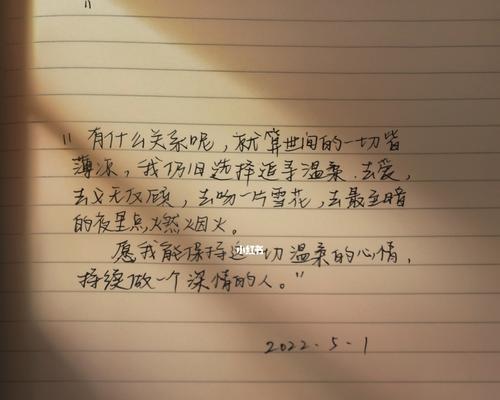 "
"有什么关系呢，就算世间的一切皆
薄凉，我仍旧选择追寻温柔.去爱，
去义无反顾，去吻一片雪花，去最至暗
的夜里点燃烟火。
愿我能保持这一切温柔的心情，
持续做一个深情的人。"
小红书
2022.5.1